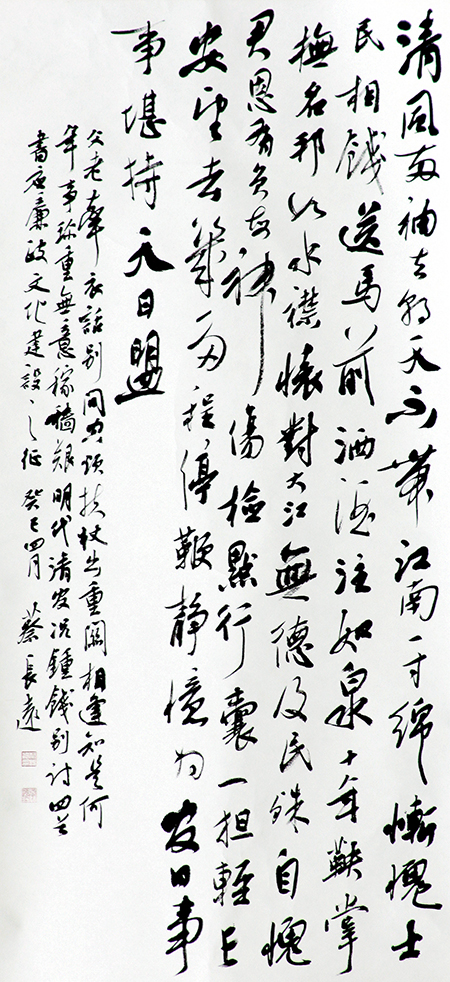 清風兩袖去朝天不帶江南一寸綿慚愧士
民相餞送馬前洒酒注如泉十年鞅掌
撫名邦似水襟懷對大江無德及民殊自愧
君恩有負神傷檢點行囊一担輕長
安望去幾多程停鞭靜憶为官日事
事堪持天日盟
父老牽衣話別扶杖出重關相逢知是何
年事珍重無意稼穡艱明代清官況鍾餞別詩四首
書應廉政文化建設之征 癸巳四月 蔡長遠